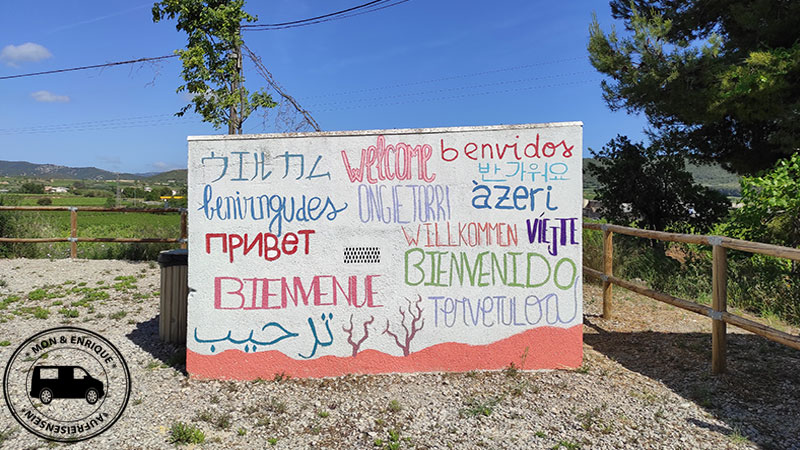 ウエルカム
welcome
benvidos
반가워요
benvingudes
ONGIETORRI
àzeri
привет
WILLKOMMEN
BIENVENIDO
BIENVENUE
Tervetuloa
ترحيب
MON & ENRIQUE
*AUFREISENSEIN*